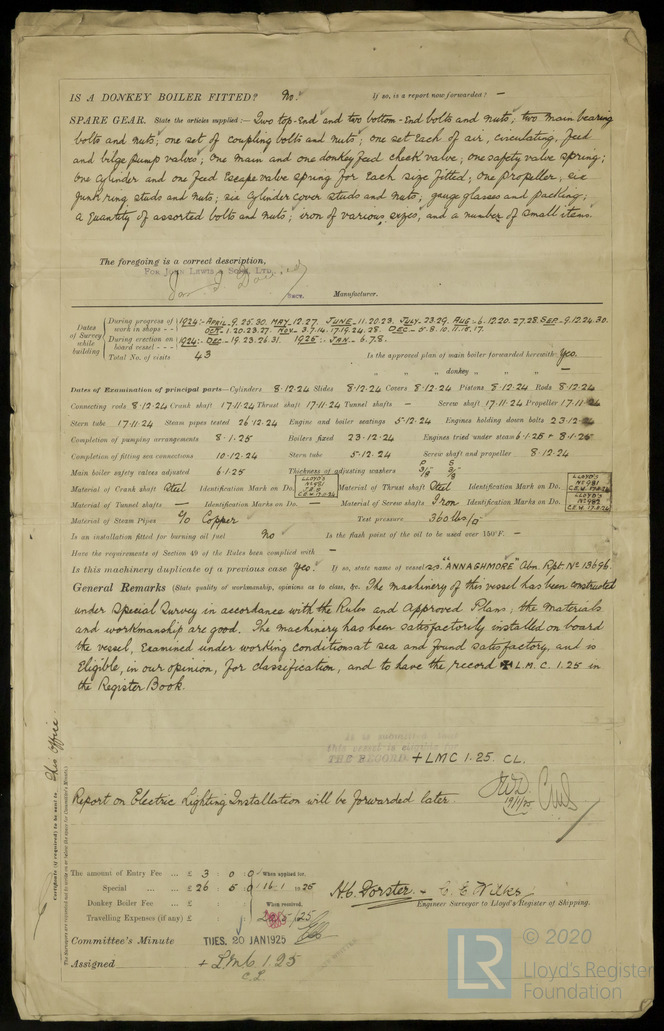 IS A DONKEY BOILER FITTED? No. If so, is a report now forwarded? —
SPARE GEAR. State the articles supplied:— Two top-end and two bottom-end bolts and nuts; two main bearing
bolts and nuts; one set of coupling bolts and nuts; one set each of air, circulating, feed
and bilge pump valves; one main and one donkey feed check valve; one safety valve spring;
one cylinder and one feed escape valve spring for each size fitted; one propeller, six
junk ring studs and nuts; six cylinder cover studs and nuts; gauge glasses and packing;
a quantity of assorted bolts and nuts; iron of various sizes, and a number of small items.
The foregoing is a correct description,
FOR JOHN LEWIS & SONS, LTD.
Manufacturer.
Dates of Survey while building
During progress of work in shops - - 1924:- APRIL-9.25.30. MAY-12.27. JUNE-11.20.23. JULY-23.29. AUG-6.12.20.27.28. SEP-9.12.24.30.
OCT-1.20.23.27. NOV-3.7.14.17.19.24.28. DEC-5.8.10.11.15.17.
During erection on board vessel - - - 1924:- DEC-19.23.26.31. 1925:- JAN-6.7.8.
Total No. of visits 43 Is the approved plan of main boiler forwarded herewith Yes.
" " " donkey " " " —
Dates of Examination of principal parts—Cylinders 8·12·24 Slides 8·12·24 Covers 8·12·24 Pistons 8·12·24 Rods 8·12·24
Connecting rods 8·12·24 Crank shaft 17·11·24 Thrust shaft 17·11·24 Tunnel shafts — Screw shaft 17·11·24 Propeller 17·11·24
Stern tube 17·11·24 Steam pipes tested 26·12·24 Engine and boiler seatings 5·12·24 Engines holding down bolts 23·12·24
Completion of pumping arrangements 8·1·25 Boilers fixed 23·12·24 Engines tried under steam 6·1·25 & 8·1·25
Completion of fitting sea connections 10·12·24 Stern tube 5·12·24 Screw shaft and propeller 8·12·24
Main boiler safety valves adjusted 6·1·25 Thickness of adjusting washers P 3/8 S 3/8
Material of Crank shaft Steel Identification Mark on Do. LLOYD'S Material of Thrust shaft Steel Identification Mark on Do. LLOYD'S Nº 981 C.E.W. 17.11.24
Material of Tunnel shafts — Identification Marks on Do. — Material of Screw shafts Iron Identification Marks on Do. LLOYD'S Nº 982 C.E.W. 17.11.24
Material of Steam Pipes Copper Test pressure 360 lbs/□"
Is an installation fitted for burning oil fuel No Is the flash point of the oil to be used over 150°F. —
Have the requirements of Section 49 of the Rules been complied with —
Is this machinery duplicate of a previous case Yes. If so, state name of vessel "ANNAGHMORE" Abn. Rpt. Nº 13696.
General Remarks (State quality of workmanship, opinions as to class, &c. The machinery of this vessel has been constructed
under Special Survey in accordance with the Rules and Approved Plans, the materials
and workmanship are good. The machinery has been satisfactorily installed on board
the vessel, examined under working conditions at sea and found satisfactory, and is
eligible, in our opinion, for classification, and to have the record ✠ L.M.C. 1.25 in
the Register Book.
It is submitted that
this vessel is eligible for
THE RECORD. + LMC 1.25. CL.
19/1/25
Report on Electric Lighting Installation will be forwarded later.
Certificate (if required) to be sent to This Office.
The amount of Entry Fee ... £ 3 : 0 : 0 When applied for,
Special ... ... £ 26 : 5 : 0 16·1·1925
Donkey Boiler Fee ... £ : : When received,
Travelling Expenses (if any) £ : :
Engineer Surveyor to Lloyd's Register of Shipping.
Committee's Minute TUES. 20 JAN 1925
Assigned + LMC 1.25
C.L.
LR
© 2020
Lloyd's Register
Foundation